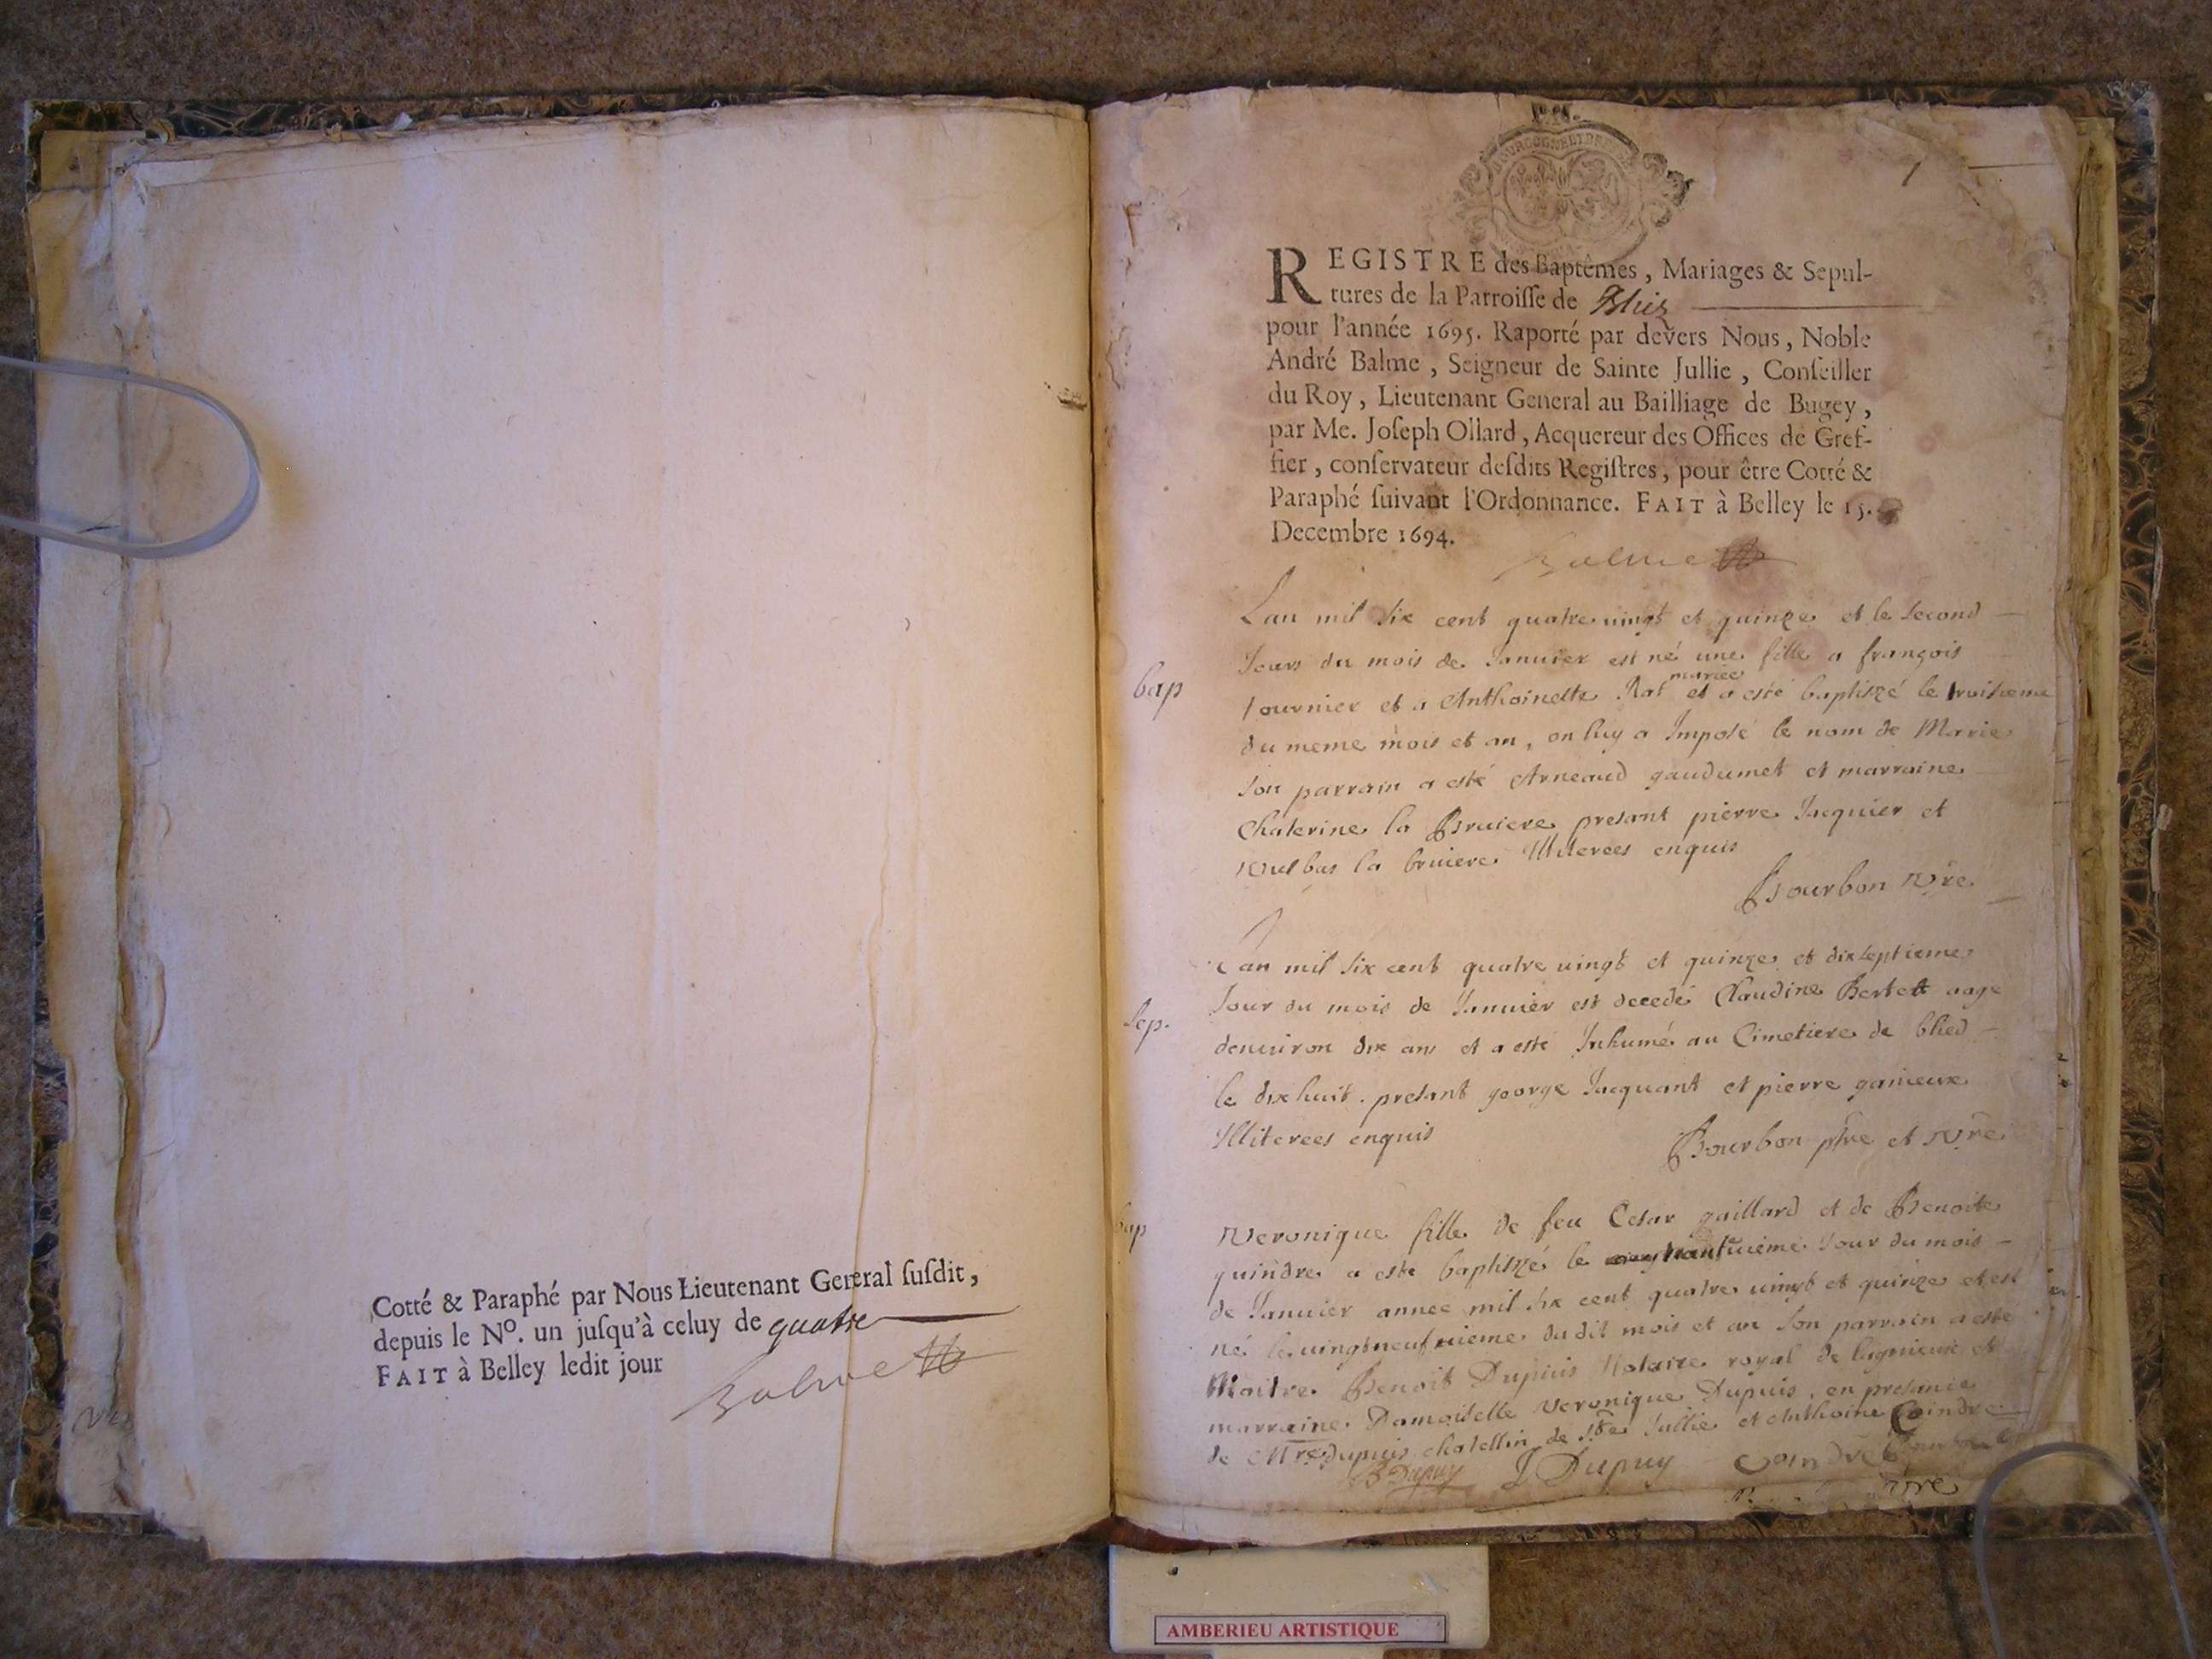 Cotté & Paraphé par Nous Lieutenant General ſuſdit,
depuis le No. un juſqu'à celuy de quatre
FAIT à Belley ledit jour
Balme
1
REGISTRE des Baptêmes, Mariages & Sepul-
tures de la Parroiſſe de Bliez
pour l'année 1695. Raporté par devers Nous, Noble
André Balme, Seigneur de Sainte Jullie, Conſeiller
du Roy, Lieutenant General au Bailliage de Bugey,
par Me. Joſeph Ollard, Acquereur des Offices de Gref-
fier, conſervateur deſdits Regiſtres, pour être Cotté &
Paraphé ſuivant l'Ordonnance. FAIT à Belley le 15.
Decembre 1694.
Balme
Lan mil six cent quatre uingt et quinze et le second
Jours du mois de Januier est né une fille a françois
bap
fournier et a Anthoinette Rat mariee et a esté baptiszé le troisieme
du meme mois et an, on luy a Imposé le nom de Marie
son parrain a esté Arneaud gaudumet et marraine
Chaterine la Bruiere presant pierre Jacquier et
Vulbas la bruiere Illiterees enquis
Bourbon vre
Lan mil six cent quatre uingt et quinze et dixseptieme
Jour du mois de Januier est decedé Claudine Bertet aage
sep.
denuiron dix ans et a esté Inhumé au Cimetiere de blied
le dixhuit. presant george Jacquant et pierre ganieux
Illiterees enquis
Bourbon ptre et vre
bap
Veronique fille de feu Cesar gaillard et de Benoite
guindre a este baptiszé le trantuieme Jour du mois
de Januier annee mil six cent quatre uingt et quinze et est
né le uingtneufuieme du dit mois et an son parrain a este
Maitre Benoit Dupuis Notaire royal de lagnieux et
marraine Damoiselle Veronique Dupuis, en presance
de Mre dupuis chatellin de Ste Jullie et Anthoine Coindre
B Dupuy J Dupuy Coindre
vre
AMBERIEU ARTISTIQUE